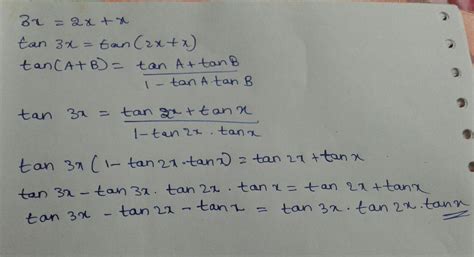 3x = 2x + x
tan 3x = tan(2x+x)
tan(A+B) = tan A + tan B / 1 - tan A . tan B
tan 3x = tan 2x + tan x / 1 - tan 2x . tan x
tan 3x (1 - tan 2x . tan x) = tan 2x + tan x
tan 3x - tan 3x . tan 2x . tan x = tan 2x + tan x
tan 3x - tan 2x - tan x = tan 3x . tan 2x . tan x